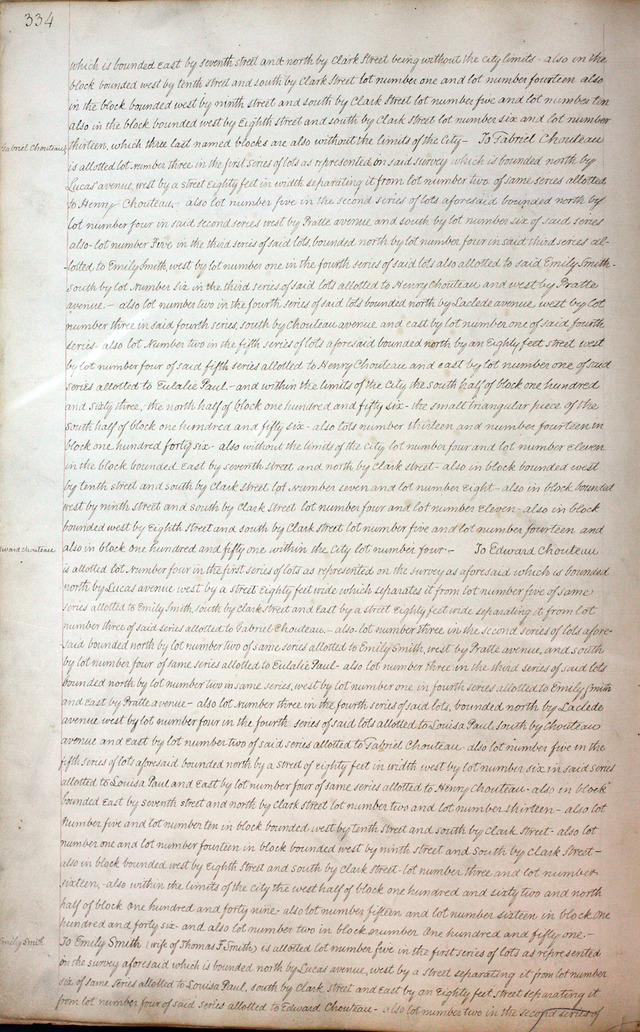 334
which is bounded East by seventh street and north by Clark Street being without the city limits - also in the
block bounded west by tenth street and south by Clark Street lot number one and lot number fourteen also
in the block bounded west by ninth street and south by Clark Street lot number five and lot number ten
also in the block bounded west by Eighth street and south by Clark Street lot number six and lot number
Gabriel Chouteau
thirteen, which three last named blocks are also without the limits of the City - To Gabriel Chouteau
is allotted lot number three in the first series of lots as represented on said survey which is bounded north by
Lucas avenue, west by a street Eighty feet in width separating it from lot number two of same series allotted
to Henry Chouteau, - also lot number five in the second series of lots aforesaid bounded north by
lot number four in said second series west by Pratte avenue and south by lot number six of said series
also - lot number Five in the third series of said lots, bounded north by lot number four in said third series al-
-lotted to Emily Smith, west by lot number one in the fourth series of said lots also allotted to said Emily Smith -
south by lot Number six in the third series of said lots allotted to Henry Chouteau and west by Pratte
avenue. - also lot number two in the fourth series of said lots bounded north by Laclede avenue, west by lot
number three in said fourth series, south by Chouteau avenue and east by lot number one of said fourth
series - also lot Number two in the fifth series of lots aforesaid bounded north by an Eighty feet street west
by lot number four of said fifth series allotted to Henry Chouteau and east by lot number one of said
series allotted to Eulalie Paul. - and within the limits of the City the south half of block one hundred
and sixty three, the north half of block one hundred and fifty six - the small triangular piece of the
south half of block one hundred and fifty six - also lots number thirteen and number fourteen in
block one hundred forty six - also without the limits of the city lot number four and lot number eleven
in the block bounded East by seventh street and north by Clark street - also in block bounded west
by tenth street and south by Clark street lot Number seven and lot number Eight - also in block bounded
west by ninth street and south by Clark street lot number four and lot number Eleven - also in block
bounded west by Eighth street and south by Clark Street lot number five and lot number fourteen and
Edward Chouteau
also in block one hundred and fifty one within the City lot number four - To Edward Chouteau
is allotted lot Number four in the first series of lots as represented on the survey as aforesaid which is bounded
north by Lucas avenue west by a street Eighty feet wide which separates it from lot number five of same
series allotted to Emily Smith, south by Clark Street and East by a street Eighty feet wide separating it from lot
number three of said series allotted to Gabriel Chouteau - also lot number three in the second series of lots afore-
said bounded north by lot number two of same series allotted to Emily Smith, west by Pratte avenue, and south
by lot number four of same series allotted to Eulalie Paul - also lot number three in the third series of said lots
bounded north by lot number two in same series, west by lot number one in fourth series allotted to Emily Smith
and east by Pratte avenue - also lot number three in the fourth series of said lots, bounded north by Laclede
avenue west by lot number four in the fourth series of said lots allotted to Louisa Paul, south by Chouteau
avenue and east by lot number two of said series allotted to Gabriel Chouteau also lot number five in the
fifth series of lots aforesaid bounded north by a street of Eighty feet in width west by lot number six in said series
allotted to Louisa Paul and East by lot number four of same series allotted to Henry Chouteau - also in block
bounded East by seventh street and north by Clark street lot number two and lot number thirteen - also lot
number five and lot number ten in block bounded west by tenth street and south by Clark Street - also lot
number one and lot number fourteen in block bounded west by ninth street and south by Clark Street -
also in block bounded west by Eighth street and south by Clark street lot number three and lot number
sixteen, - also within the limits of the city the west half of block one hundred and sixty two and north
half of block one hundred and forty nine - also lot number fifteen and lot number sixteen in block one
hundred and forty six - and also lot number two in block number One hundred and fifty one. -
Emily Smith
To Emily Smith (wife of Thomas F. Smith) is allotted lot number five in the first series of lots as represented
on the survey aforesaid which is bounded north by Lucas avenue, west by a street separating it from lot number
six of same series allotted to Louisa Paul, south by Clark street and East by an Eighty feet street separating it
from lot number four of said series allotted to Edward Chouteau - also lot number two in the second series of